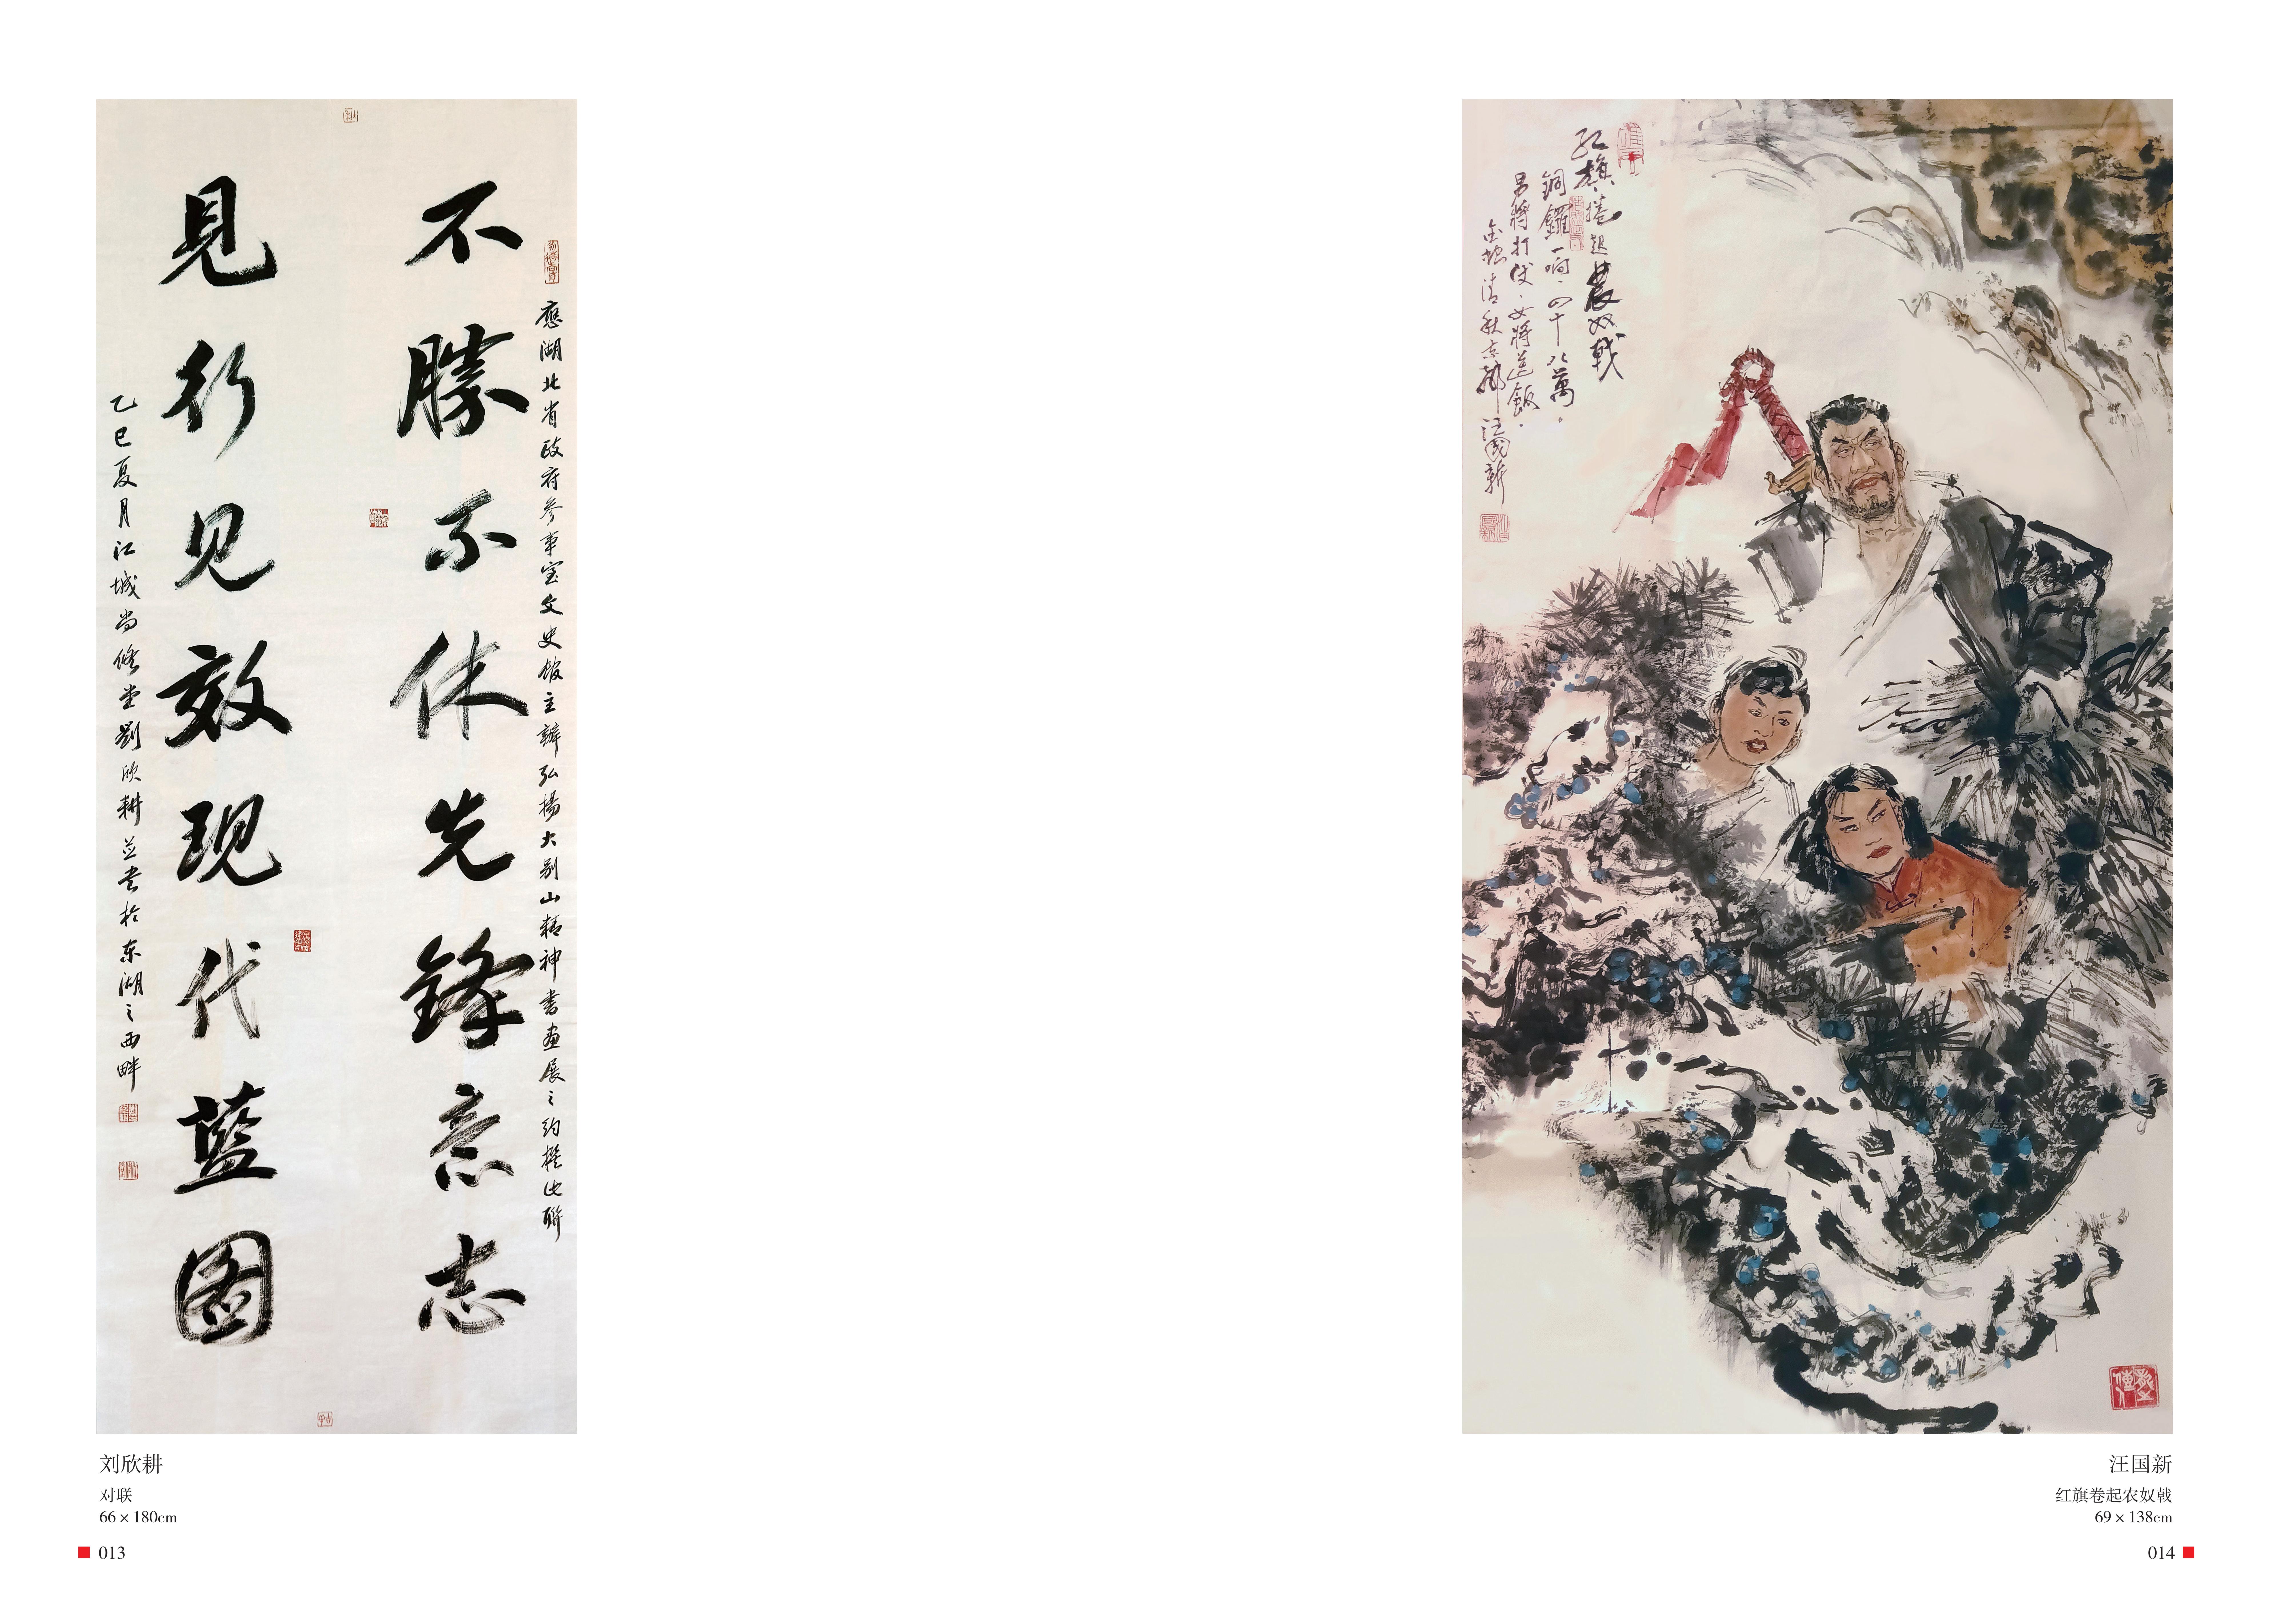 不勝不休先鋒意志
見行见效现代藍圖
應湖北省政府参事室文史館主辦弘揚大别山精神書画展之约撰此聯
乙巳夏月江城尚修堂劉欣耕並书於东湖之西畔
刘欣耕
对联
66 × 180cm
013
红旗捲起農奴戟
銅鑼一响·四十八萬。
男將打仗·女將送飯·
清秋
汪國新
汪国新
红旗卷起农奴戟
69 × 138cm
014